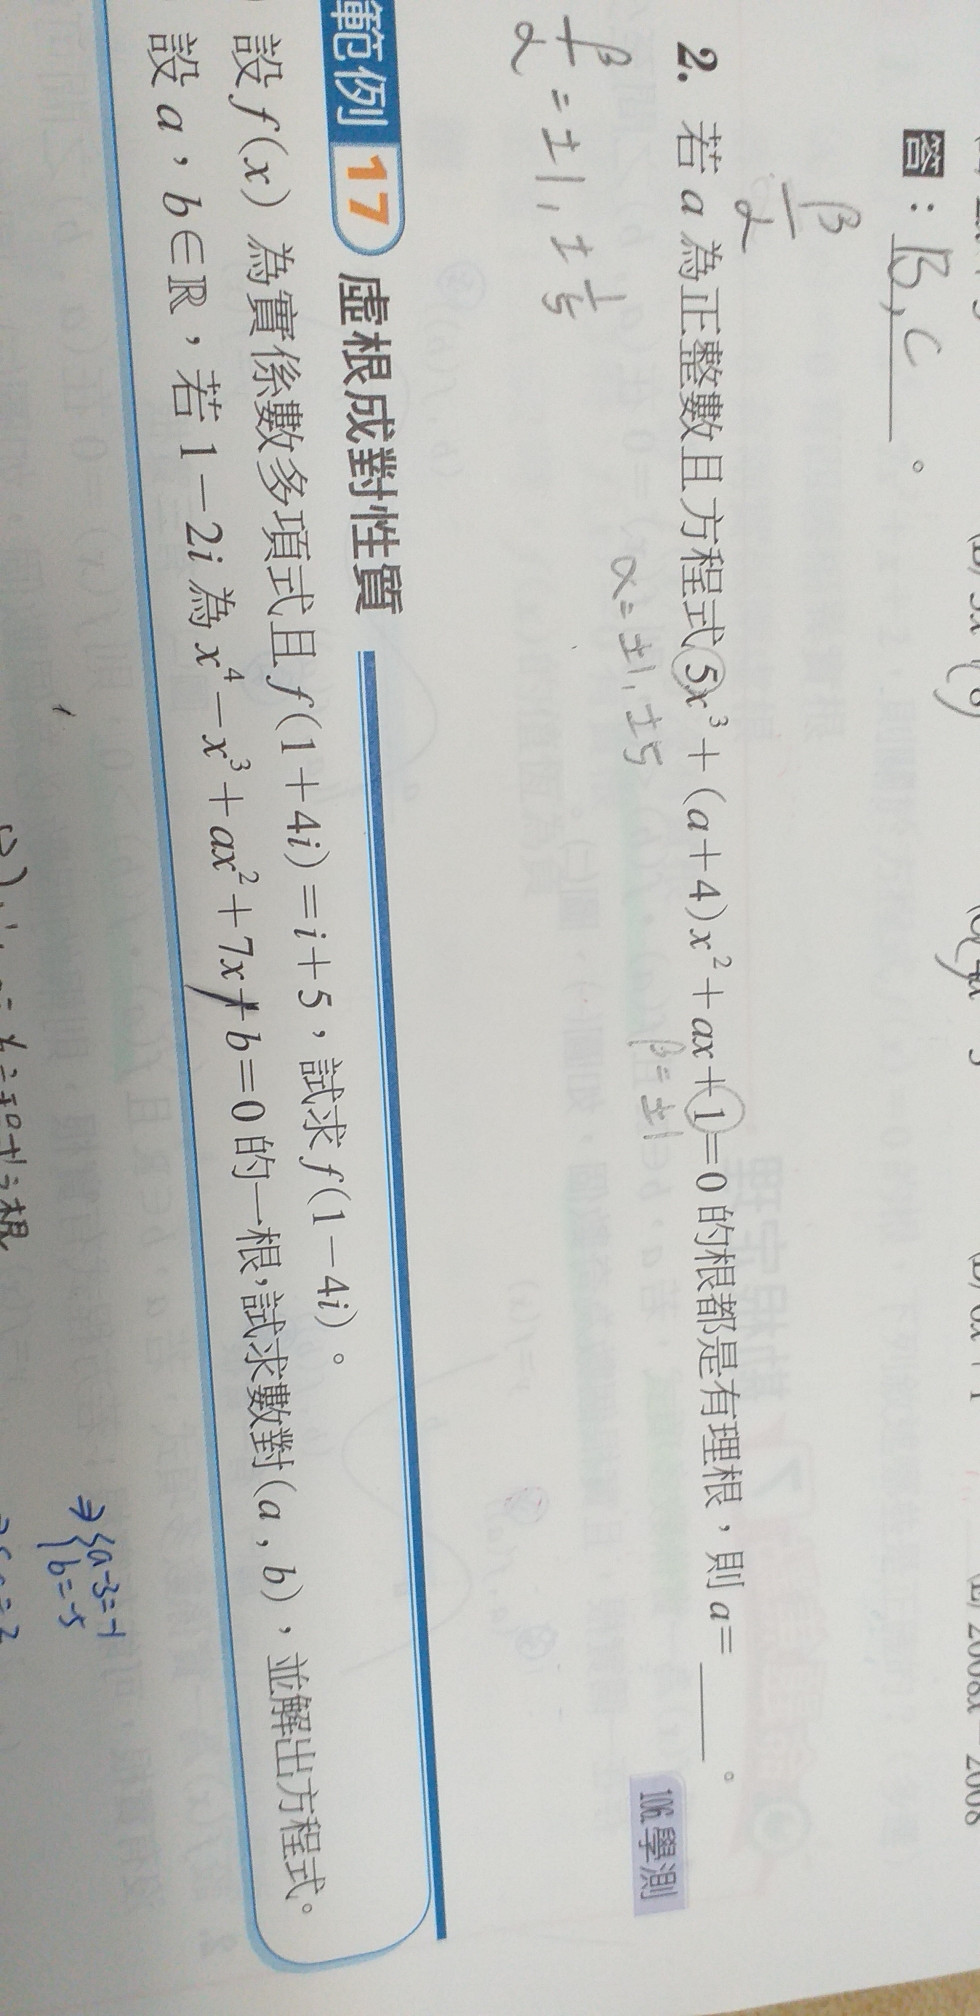 答：B, C 。
β/α
2. 若 a 為正整數且方程式 5x³+(a+4)x²+ax+1=0 的根都是有理根，則 a=____。
106.學測
α=±1, ±5
β=±1
β/α = ±1, ±1/5
範例 17 虛根成對性質
設 f(x) 為實係數多項式且 f(1+4i)=i+5，試求 f(1-4i)。
設 a，b∈ℝ，若 1-2i 為 x⁴-x³+ax²+7x+b=0 的一根，試求數對(a，b)，並解出方程式。
⇒{a-3=-1
b=-5